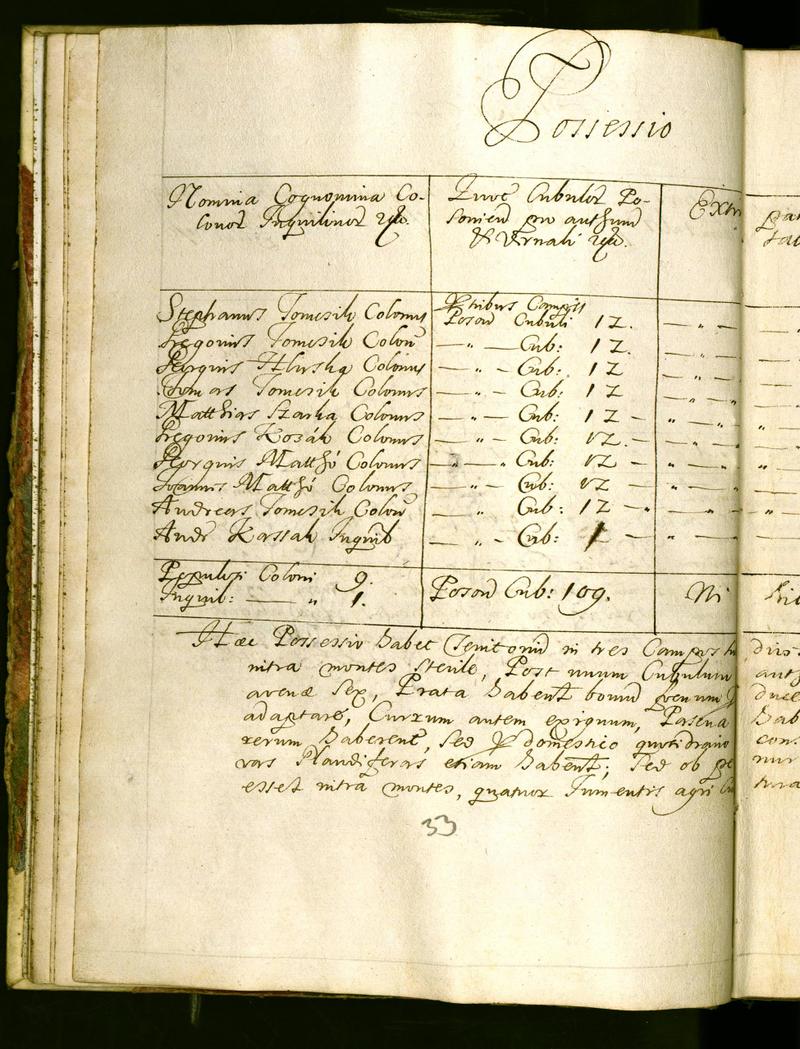 Possessio
Nomina Cognomina Co-
lonor Inquilinor
Cubulor Po-
sonien pro authum
& Vernali
Extr
Stephanus Tomesik Colonus
in tribus Campis
Poson Cubuli 12
Gregorius Tomesik Colon
— „ — Cub: 12.
Georgius Hluska Colonus
— „ — Cub: 12
Thomas Tomesik Colonus
— „ — Cub: 12
Matthias Szarka Colonus
— „ — Cub: 12 —
Gregorius Kozák Colonus
— „ — Cub: 12. —
Georgius Matthó Colonus
— „ — Cub: 12 —
Joannes Matthó Colonus
— „ — Cub: 12 —
Andreas Tomesik Colon
— „ Cub: 12 —
Andr Kassak Inquil
— „ — Cub: 1 —
Populosi Coloni 9.
Inquil: — „ 1.
Poson Cub: 109.
Ni
Haec Possessio habet Territoriu in tres Campos
intra montes sterile, Post unum Cubulum
avenae sex, Prata habent bonum
adaptare, Curzum autem exiguum, Pascua
habere, sed domestico
etiam habent; sed ob
esset intra montes, quatuor Iumentis agri
33